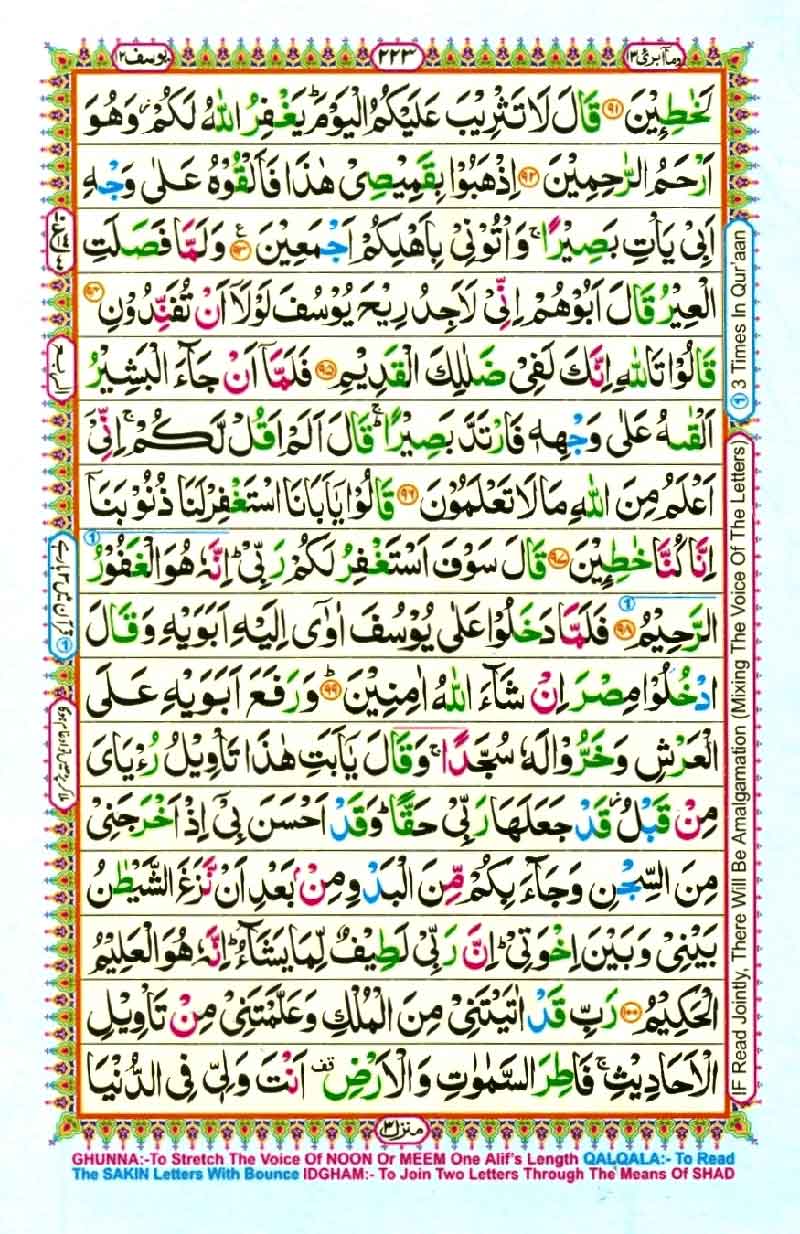 وما أبرئ ١٣
٢٢٣
يوسف ١٢
لَخٰطِـِٕيْنَ ﴿۹۱﴾ قَالَ لَا تَثْرِيْبَ عَلَيْكُمُ الْيَوْمَ ؕ يَغْفِرُ اللّٰهُ لَكُمْ ؗ وَهُوَ
اَرْحَمُ الرّٰحِمِيْنَ ﴿۹۲﴾ اِذْهَبُوْا بِقَمِيْصِيْ هٰذَا فَاَلْقُوْهُ عَلٰى وَجْهِ
اَبِيْ يَاْتِ بَصِيْرًا ۚ وَاْتُوْنِيْ بِاَهْلِكُمْ اَجْمَعِيْنَ ﴿۹۳﴾ وَلَمَّا فَصَلَتِ
الْعِيْرُ قَالَ اَبُوْهُمْ اِنِّيْ لَاَجِدُ رِيْحَ يُوْسُفَ لَوْلَاۤ اَنْ تُفَنِّدُوْنِ ﴿۹۴﴾
قَالُوْا تَاللّٰهِ اِنَّكَ لَفِيْ ضَلٰلِكَ الْقَدِيْمِ ﴿۹۵﴾ فَلَمَّاۤ اَنْ جَآءَ الْبَشِيْرُ
اَلْقٰىهُ عَلٰى وَجْهِهٖ فَارْتَدَّ بَصِيْرًا ۚ قَالَ اَلَمْ اَقُلْ لَّكُمْ ۚ اِنِّيْۤ
اَعْلَمُ مِنَ اللّٰهِ مَا لَا تَعْلَمُوْنَ ﴿۹۶﴾ قَالُوْا يٰۤاَبَانَا اسْتَغْفِرْ لَنَا ذُنُوْبَنَاۤ
اِنَّا كُنَّا خٰطِـِٕيْنَ ﴿۹۷﴾ قَالَ سَوْفَ اَسْتَغْفِرُ لَكُمْ رَبِّيْ ؕ اِنَّهٗ هُوَ الْغَفُوْرُ
الرَّحِيْمُ ﴿۹۸﴾ فَلَمَّا دَخَلُوْا عَلٰى يُوْسُفَ اٰوٰۤى اِلَيْهِ اَبَوَيْهِ وَقَالَ
ادْخُلُوْا مِصْرَ اِنْ شَآءَ اللّٰهُ اٰمِنِيْنَ ﴿۹۹﴾ؕ وَرَفَعَ اَبَوَيْهِ عَلَى
الْعَرْشِ وَخَرُّوْا لَهٗ سُجَّدًا ۚ وَقَالَ يٰۤاَبَتِ هٰذَا تَاْوِيْلُ رُءْيَايَ
مِنْ قَبْلُ ؗ قَدْ جَعَلَهَا رَبِّيْ حَقًّا ؕ وَقَدْ اَحْسَنَ بِيْۤ اِذْ اَخْرَجَنِيْ
مِنَ السِّجْنِ وَجَآءَ بِكُمْ مِّنَ الْبَدْوِ مِنْۢ بَعْدِ اَنْ نَّزَغَ الشَّيْطٰنُ
بَيْنِيْ وَبَيْنَ اِخْوَتِيْ ؕ اِنَّ رَبِّيْ لَطِيْفٌ لِّمَا يَشَآءُ ؕ اِنَّهٗ هُوَ الْعَلِيْمُ
الْحَكِيْمُ ﴿۱۰۰﴾ رَبِّ قَدْ اٰتَيْتَنِيْ مِنَ الْمُلْكِ وَعَلَّمْتَنِيْ مِنْ تَاْوِيْلِ
الْاَحَادِيْثِ ۚ فَاطِرَ السَّمٰوٰتِ وَالْاَرْضِ ࣞ قف اَنْتَ وَلِيّٖ فِي الدُّنْيَا
منزل ٣
① 3 Times In Qur'aan
IF Read Jointly, There Will Be Amalgamation (Mixing The Voice Of The Letters)
GHUNNA:-To Stretch The Voice Of NOON Or MEEM One Alif's Length QALQALA:- To Read
The SAKIN Letters With Bounce IDGHAM:- To Join Two Letters Through The Means Of SHAD